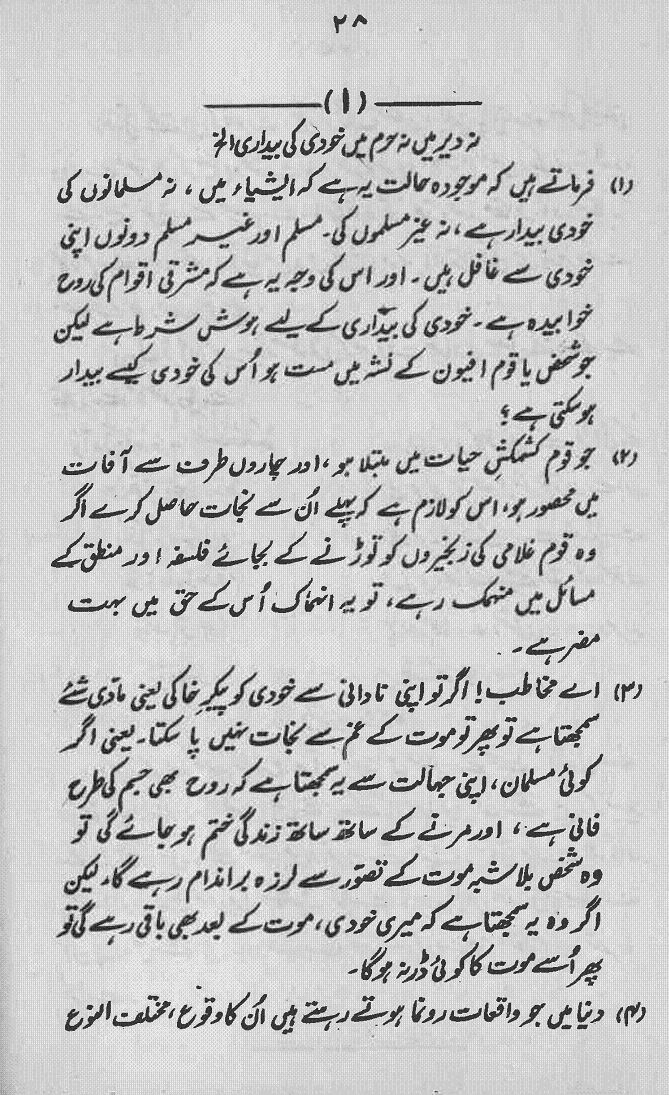 ۲۸
(۱)
نہ دیر میں نہ حرم میں خودی کی بیداری الخ
(۱) فرماتے ہیں کہ موجودہ حالت یہ ہے کہ ایشیاء میں ، نہ مسلمانوں کی
خودی بیدار ہے ، نہ غیر مسلموں کی۔ مسلم اور غیر مسلم دونوں اپنی
خودی سے غافل ہیں۔ اور اس کی وجہ یہ ہے کہ مشرقی اقوام کی روح
خوابیدہ ہے۔ خودی کی بیداری کے لیے ہوش شرط ہے لیکن
جو شخص یا قوم افیون کے نشہ میں مست ہو اُس کی خودی کیسے بیدار
ہوسکتی ہے ؟
(۲) جو قوم کشمکشِ حیات میں مبتلا ہو ، اور چاروں طرف سے آفات
میں محصور ہو، اس کو لازم ہے کہ پہلے اُن سے نجات حاصل کرے اگر
وہ قوم غلامی کی زنجیروں کو توڑنے کے بجائے فلسفہ اور منطق کے
مسائل میں منہمک رہے ، تو یہ انہماک اُس کے حق میں بہت
مضر ہے۔
(۳) اے مخاطب! اگر تو اپنی نادانی سے خودی کو پیکرِ خاکی یعنی مادّی شئے
سمجھتا ہے تو پھر تو موت کے غم سے نجات نہیں پا سکتا۔ یعنی اگر
کوئی مسلمان ، اپنی جہالت سے یہ سمجھتا ہے کہ روح بھی جسم کی طرح
فانی ہے ، اور مرنے کے ساتھ ساتھ زندگی ختم ہو جائے گی تو
وہ شخص بلا شبہ موت کے تصوّر سے لرزہ براندام رہے گا۔ لیکن
اگر وہ یہ سمجھتا ہے کہ میری خودی ، موت کے بعد بھی باقی رہے گی تو
پھر اُسے موت کا کوئی ڈر نہ ہوگا۔
(۴) دنیا میں جو واقعات رونما ہوتے رہتے ہیں اُن کا وقوع ، مختلف النوع